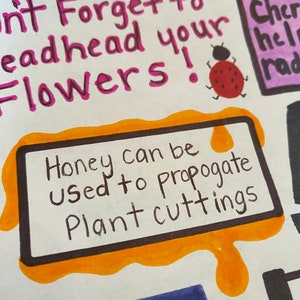 Forget to
eadhead your
Flowers!
Honey can be
used to propogate
Plant cuttings